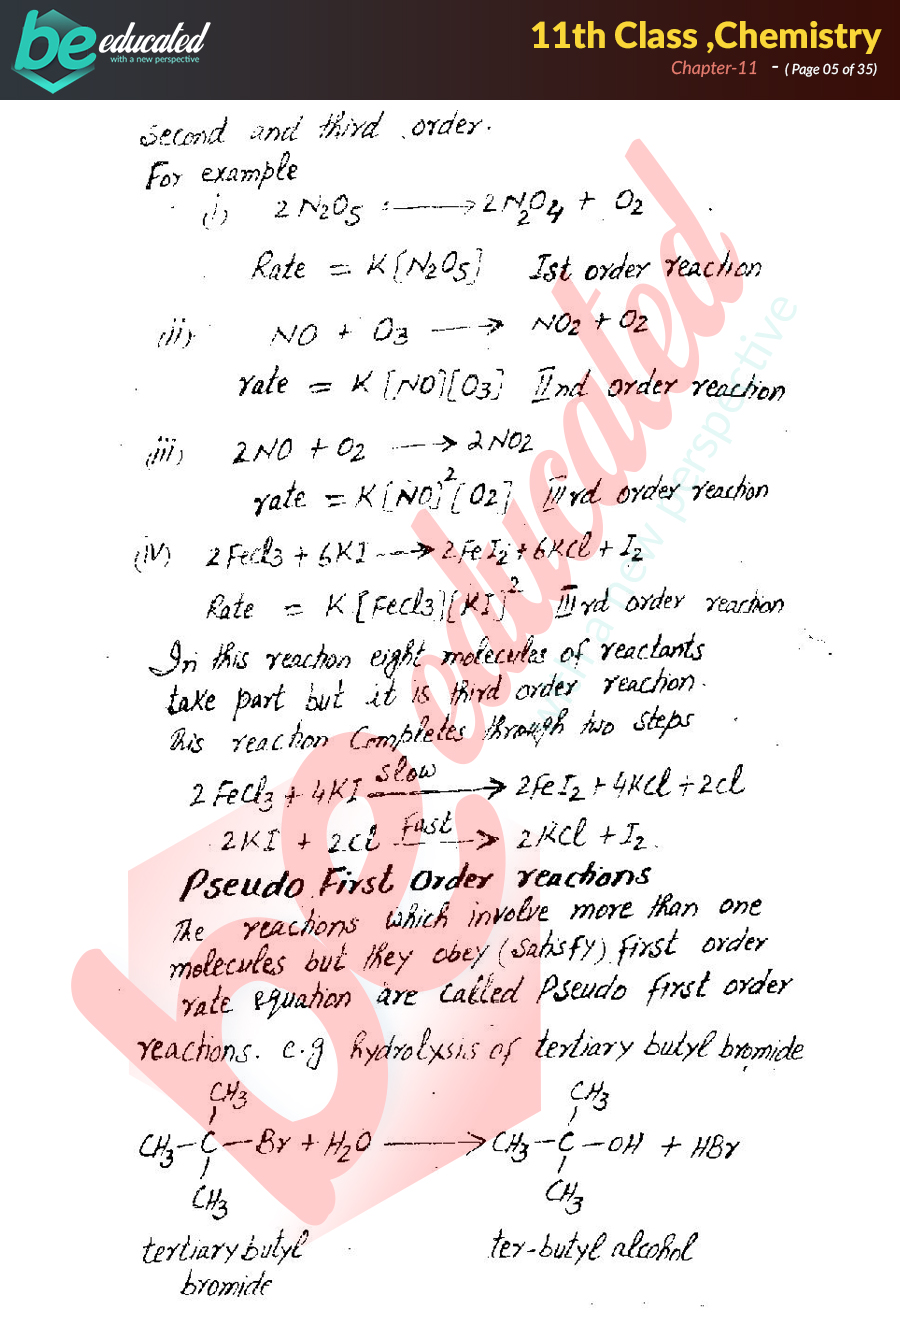 be educated
with a new perspective
11th Class ,Chemistry
Chapter-11 - ( Page 05 of 35)
second and third order.
For example
(i) 2N2O5 ⟶ 2N2O4 + O2
Rate = K[N2O5] Ist order reaction
(ii) NO + O3 ⟶ NO2 + O2
rate = K[NO][O3] IInd order reaction
(iii) 2NO + O2 ⟶ 2NO2
rate = K[NO]² [O2] IIIrd order reaction
(iv) 2FeCl3 + 6KI ⟶ 2FeI2 + 6KCl + I2
Rate = K[FeCl3][KI]² IIIrd order reaction
In this reaction eight molecules of reactants
take part but it is third order reaction.
This reaction Completes through two steps
2FeCl3 + 4KI slow⟶ 2FeI2 + 4KCl + 2Cl
2KI + 2Cl Fast⟶ 2KCl + I2.
Pseudo First Order reactions
The reactions which involve more than one
molecules but they obey (satisfy) first order
rate equation are called Pseudo first order
reactions. e.g hydrolysis of tertiary butyl bromide
CH3 CH3
CH3-C-Br + H2O ⟶ CH3-C-OH + HBr
CH3 CH3
tertiary butyl ter-butyl alcohol
bromide
be educated
with a new perspective